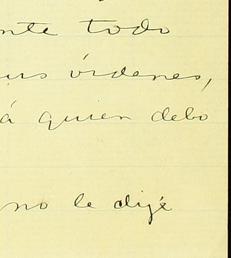 nte todo
us órdenes,
á quien debo
no le dije